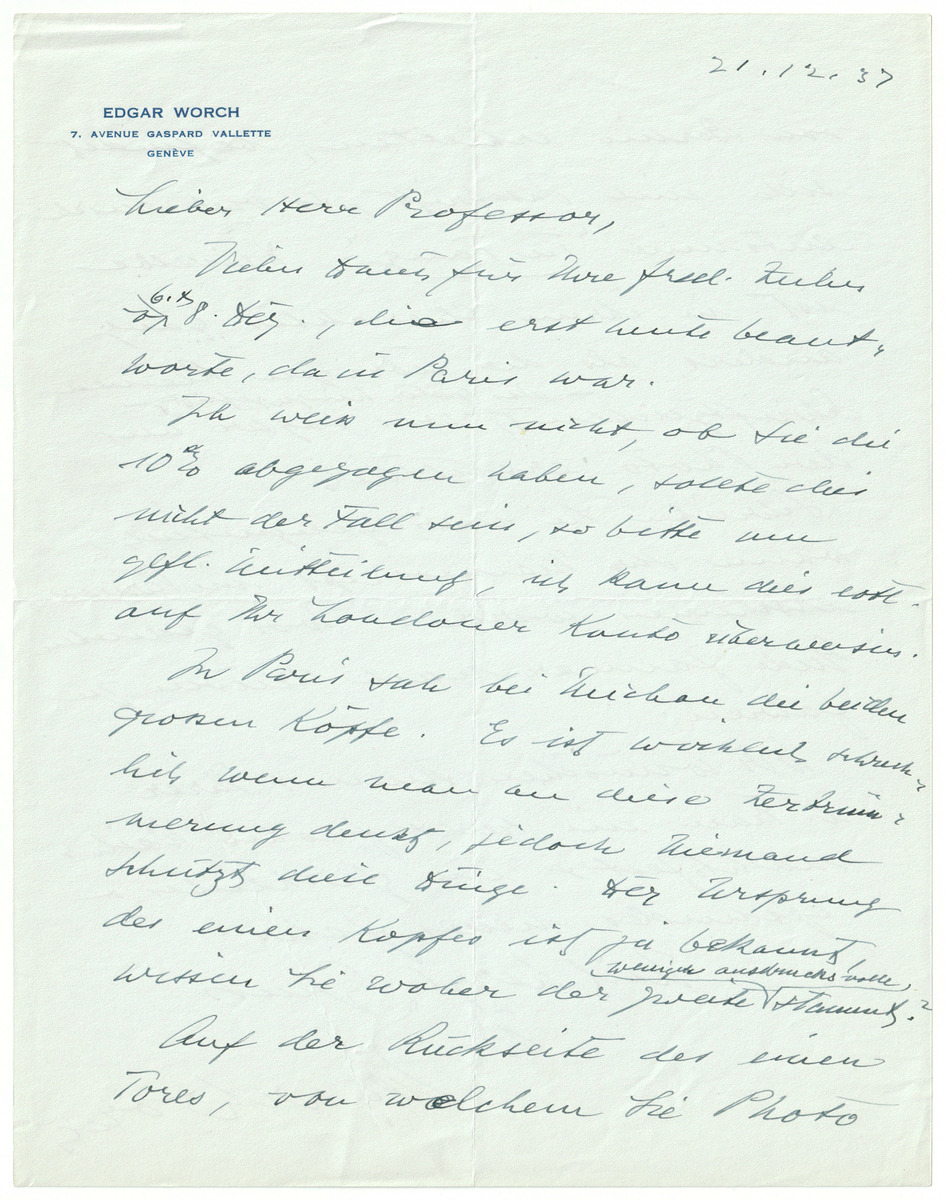 21.12.37
EDGAR WORCH
7. AVENUE GASPARD VALLETTE
GENÈVE
Lieber Herr Professor,
Vielen Dank für Ihre frdl. Zeilen
6. &
8. Dez., die erst heute beant-
worte, da in Paris war.
Ich weiss nun nicht, ob Sie die
10% abgezogen haben, sollte dies
nicht der Fall sein, so bitte um
gefl. Mitteilung, ich kann dies evtl.
auf Ihr Londoner Konto überweisen.
In Paris sah bei Michon die beiden
grossen Köpfe. Es ist wirklich schreck-
lich wenn man an diese Zertrüm-
merung denkt, jedoch Niemand
schützt diese Dinge. Der Ursprung
des einen Kopfes ist ja bekannt,
weniger ausdrucksvolle,
wissen Sie woher der zweite stammt?
Auf der Rückseite des einen
Tores, von welchem Sie Photo